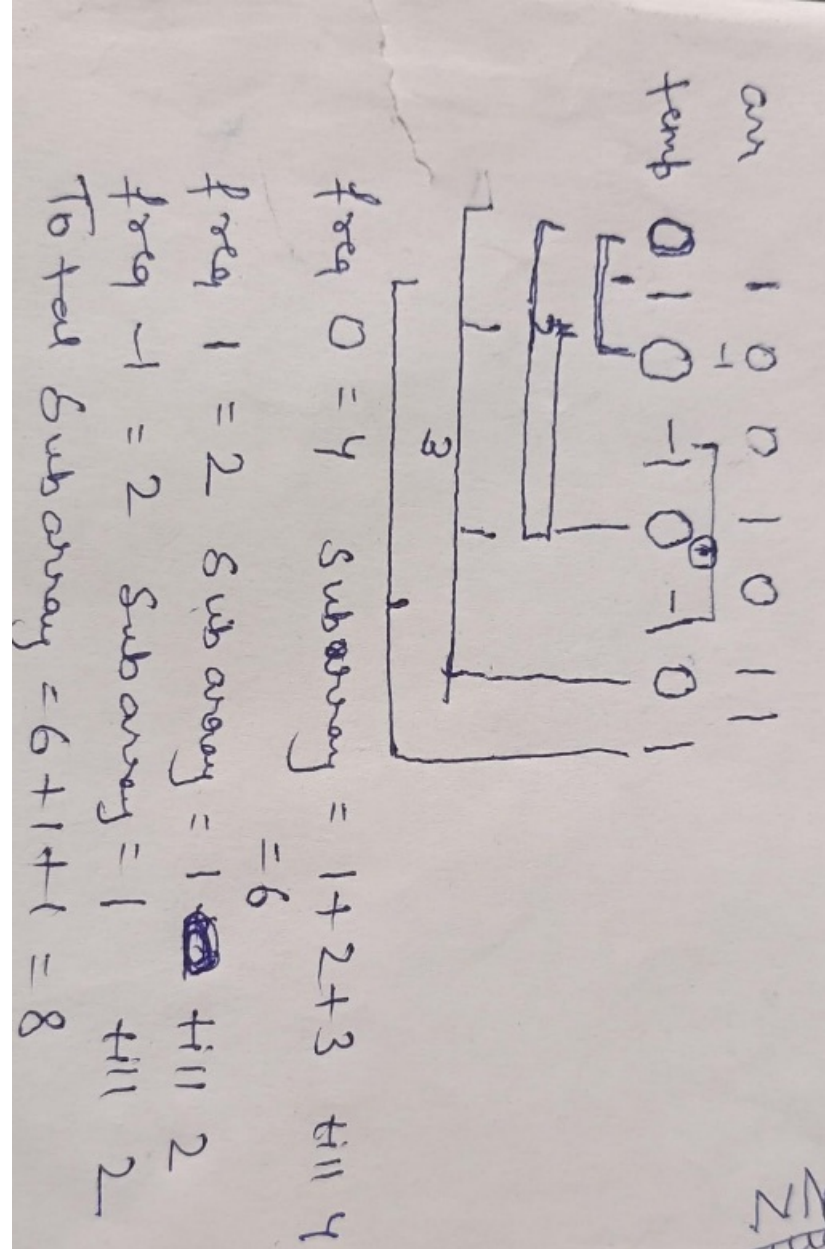 arr 1 0 0 1 0 1 1
-1
temp 0 1 0 -1 0 -1 0 1
2
3
freq 0 = 4 Subarray = 1+2+3 till 4
= 6
freq 1 = 2 Subarray = 1 till 2
freq -1 = 2 Subarray = 1 till 2
Total Subarray = 6+1+1 = 8